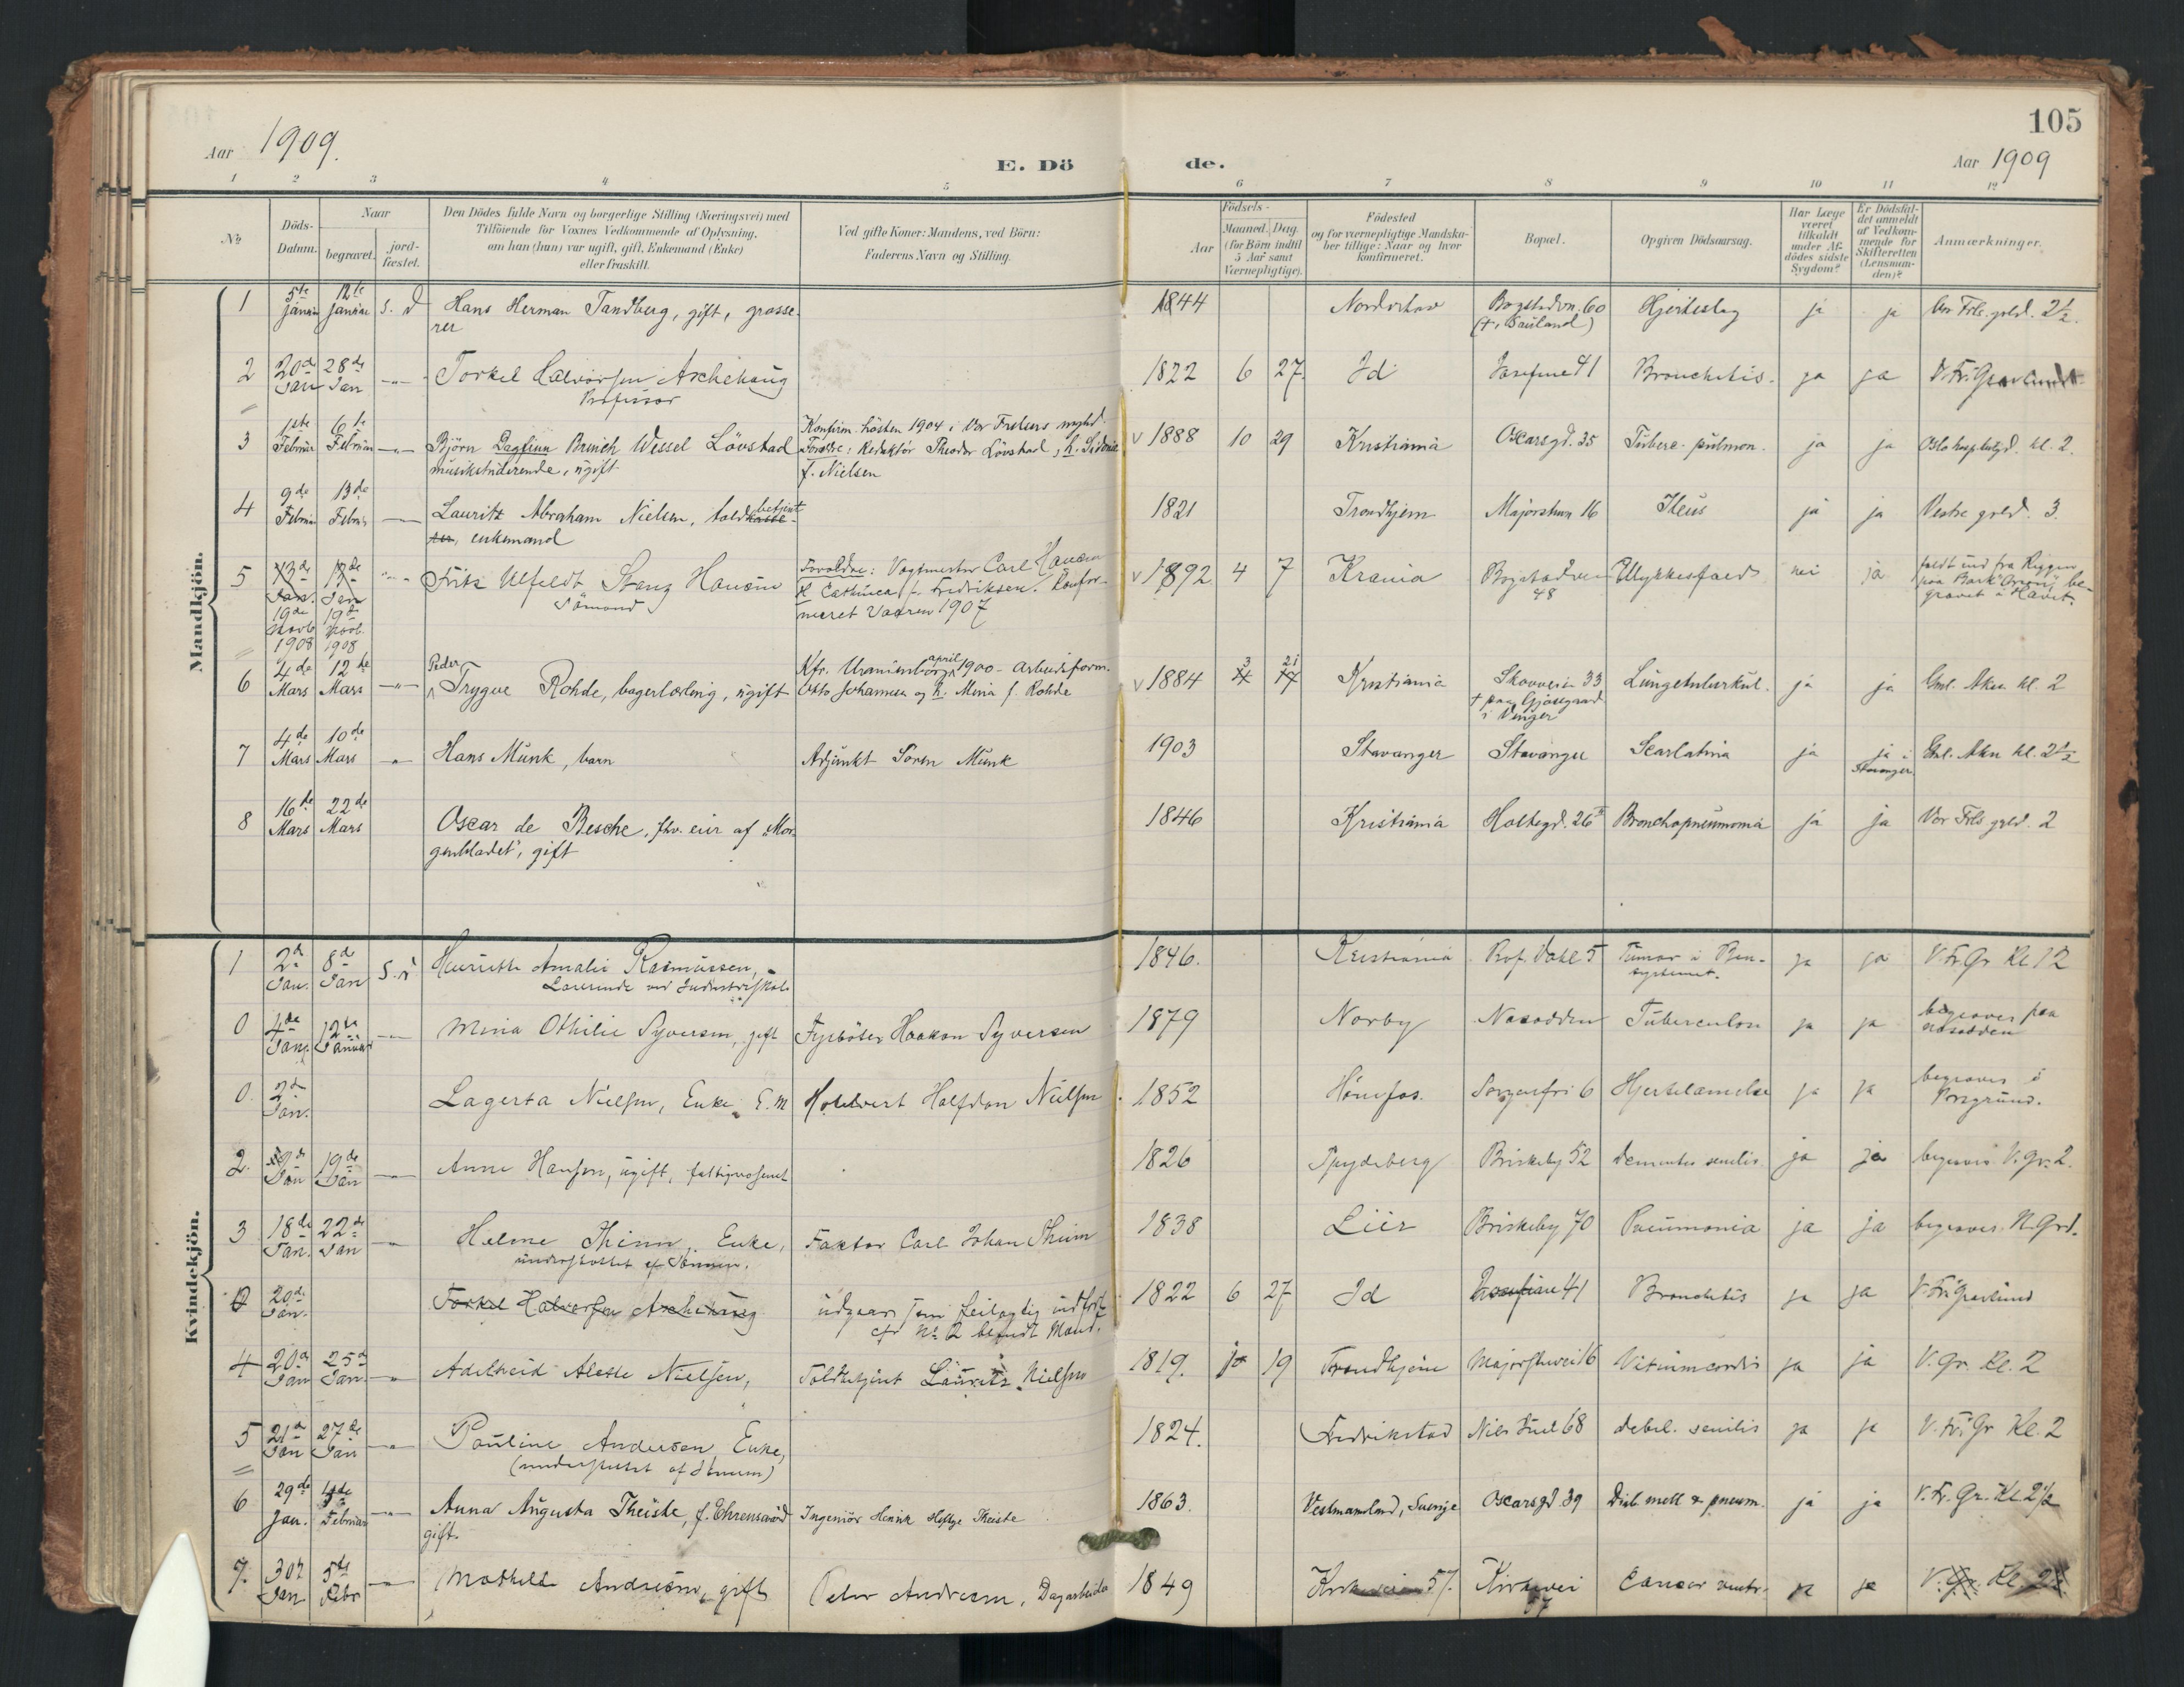 105
Aar 1909.
E. Döde.
Aar 1909
1 2 3 4 5 6 7 8 9 10 11 12
No
Döds-Datum.
Naar
begravet.
jord-fæstet.
Den Dödes fulde Navn og borgerlige Stilling (Næringsvei) med
Tilföiende for Voxnes Vedkommende af Oplysning,
om han (hun) var ugift, gift, Enkemand (Enke)
eller fraskilt.
Ved gifte Koner: Mandens, ved Börn:
Faderens Navn og Stilling.
Födsels-
Aar
Maaned. Dag.
(for Börn indtil
5 Aar samt
Værnepligtige).
Födested
og for værnepligtige Mandska-
ber tillige: Naar og hvor
konfirmeret.
Bopæl.
Opgiven Dödsaarsag.
Har Læge
været
tilkaldt
under Af-
dödes sidste
Sygdom?
Er Dödsfal-
det anmeldt
af Vedkom-
mende for
Skifteretten
(Lensman-
den)?
Anmærkninger.
Mandkjön.
1 5te Januar 12te Januar s. d Hans Herman Tandberg, gift, grosse-
rer 1844 Norderhov Bogstadvn. 60
Hjerteslag ja ja Vor Frls. grld. 2½.
2 20de Jan 28de Jan —"— Torkel Halvorsen Aschehoug
Professor 1822 6 27. Id Josefine 41 Bronchitis. ja ja V. Fr. Gravlund
3 1ste Februar 6te Februar —"— Björn Dagfinn Brinch Wessel Lövstad
musikstuderende, ugift
Konfirm. hösten 1904 i Vor Frelsers mghd.
Foræld.: Redaktör Theodor Lövstad, h. Sidonie
f. Nielsen
v 1888 10 29 Kristiania Oscarsgd. 35 Tuberc. pulmon. ja ja Oslo hospitalgd. kl. 2.
4 9de Februar 13de Febr. —"— Lauritz Abraham Nielsen, toldbetjent
enkemand 1821 Trondhjem Majorstuvn 16 Ileus ja ja Vestre grld. 3.
5 13de Jan. 17de Jan
19de Novb. 1908 19de Novb. 1908 —"— Fritz Ulfeldt Stang Hansen
Sömand
Forældre: Vagtmester Carl Hansen
& Cathinca f. Fredriksen. Konfir-
meret Vaaren 1907
v 1892 4 7 Krania Bogstadveien
48 Ulykkesfald nei ja faldt ned fra Riggen
paa Bark "Orion", be-
gravet i Havet.
6 4de Mars 12te Mars —"— Peder
Trygve Rohde, bagerlærling, ugift
Kfr. Uranienborg april 1900 - Arbeidsform.
Otto Johannesen og h. Mina f. Rohde
v 1884 3 21 Kristiania Skovveien 33
+ paa Gjösegaard
i Vinger Lungetuberkul. ja ja Gml. Aker kl. 2
7 4de Mars 10de Mars —"— Hans Munk, barn Adjunkt Sören Munk 1903 Stavanger Stavanger Scarlatina ja ja i
Stavanger Gml. Aker kl. 2½
8 16de Mars 22de Mars Oscar de Besche, fhv. eier af "Mor-
genbladet", gift 1846 Kristiania Holtegd. 26 II Bronchopneumonia ja ja Vor Frls grld. 2
Kvindekjön.
1 2de Jan. 8de Jan Henriette Amalie Rasmussen,
Lærerinde ved Industriskole 1846. Kristiania Prof. Dahl 5 Tumor i
ja ja V. Fr. Gr Kl 12
0 4de Jan. 12te Januar —"— Mina Othilie Syversen, gift Fyrböter Haakon Syversen 1879 Norby Nesodden Tuberculose ja ja begraves paa
Nesodden
0. 2de Jan. Lagerta Nielsen, Enke E. M Halfdan Nielsen 1852 Hönefos. Sorgenfri 6 Hjertelammelse ja ja begraves i
Porsgrund.
2. Jan 19de Jan —"— Anne Hansen, ugift, fattigunderst 1826 Spydeberg Briskeby 52 Dementia senilis ja ja begraves V. Gr. 2.
3 18de Jan. 22de Jan —"— Helene Thim, Enke,
understöttet af Sönnen. Faktor Carl Johan Thim 1838 Lier Briskeby 70 Pneumonia ja ja begraves. N. Grd.
0 20de Jan. Torkel Halvorsen Aschehoug udgaar som feilagtig indfört
cfr No 2 blandt Mænd. 1822 6 27 Id Josefine 41 Bronchitis ja ja V. Fr. Gravlund
4 20de Jan 25de Jan. —"— Adelheid Alette Nielsen, Toldbetjent Lauritz Nielsen 1819. 10 19 Trondhjem Majorstuvei 16 Vitium cordis ja ja V. Gr. Kl. 2
5 21de Jan 27de Jan —"— Pauline Andersen Enke,
1824. Fredrikstad Niels Juel 68 debil. senilis ja ja V. Fr. Gr Kl. 2
6 29de Jan. 4de Februar —"— Anna Augusta Theiste, f. Ehrensvärd
gift. Ingeniör Henrik Heftye Theiste 1863. Vestmanland, Sverige Oscarsgd 39 Diab. mell & pneum. ja ja V. Fr. Gr. Kl 2½
7. 30te Jan 5te Febr —"— Mathilde Andresen, gift Peter Andresen, Dagarbeider 1849 57. Kirkevei
57 Cancer ventr. ja ja V. Gr. Kl. 2